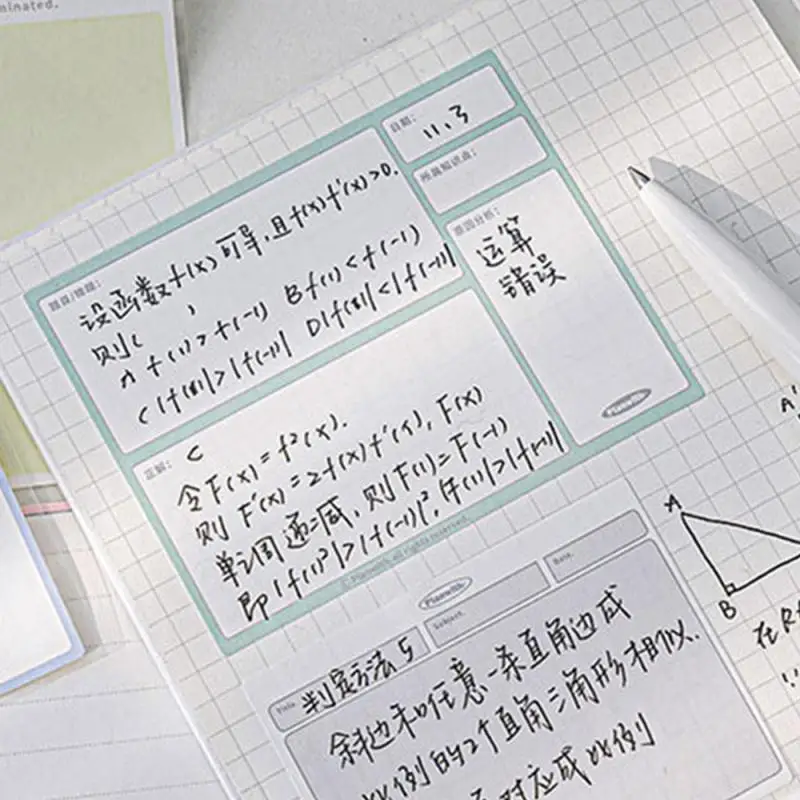 minated.
日期：
11、3
所属知识点：
题目/难题：
设函数f(x)可导，且f(x)f'(x)>0.
则(　)
A f(1)>f(-1) B f(1)<f(-1)
C |f(1)|>|f(-1)| D |f(1)|<|f(-1)|
原因分析：
运算
错误
Planwith
正解：
C
令F(x)=f²(x).
则 F'(x)=2f(x)f'(x), F(x)
单调递减, 则F(1)=F(-1)
即|f(1)²|>|f(-1)|², 得|f(1)|>|f(-1)|
© Planwith. all rights reserved.
Planwith
Title.
判定方法5
Subject.
Date.
斜边和任意一条直角边成
比例的2个直角三角形相似.
对应成比例
A
B
A'
在R
∵